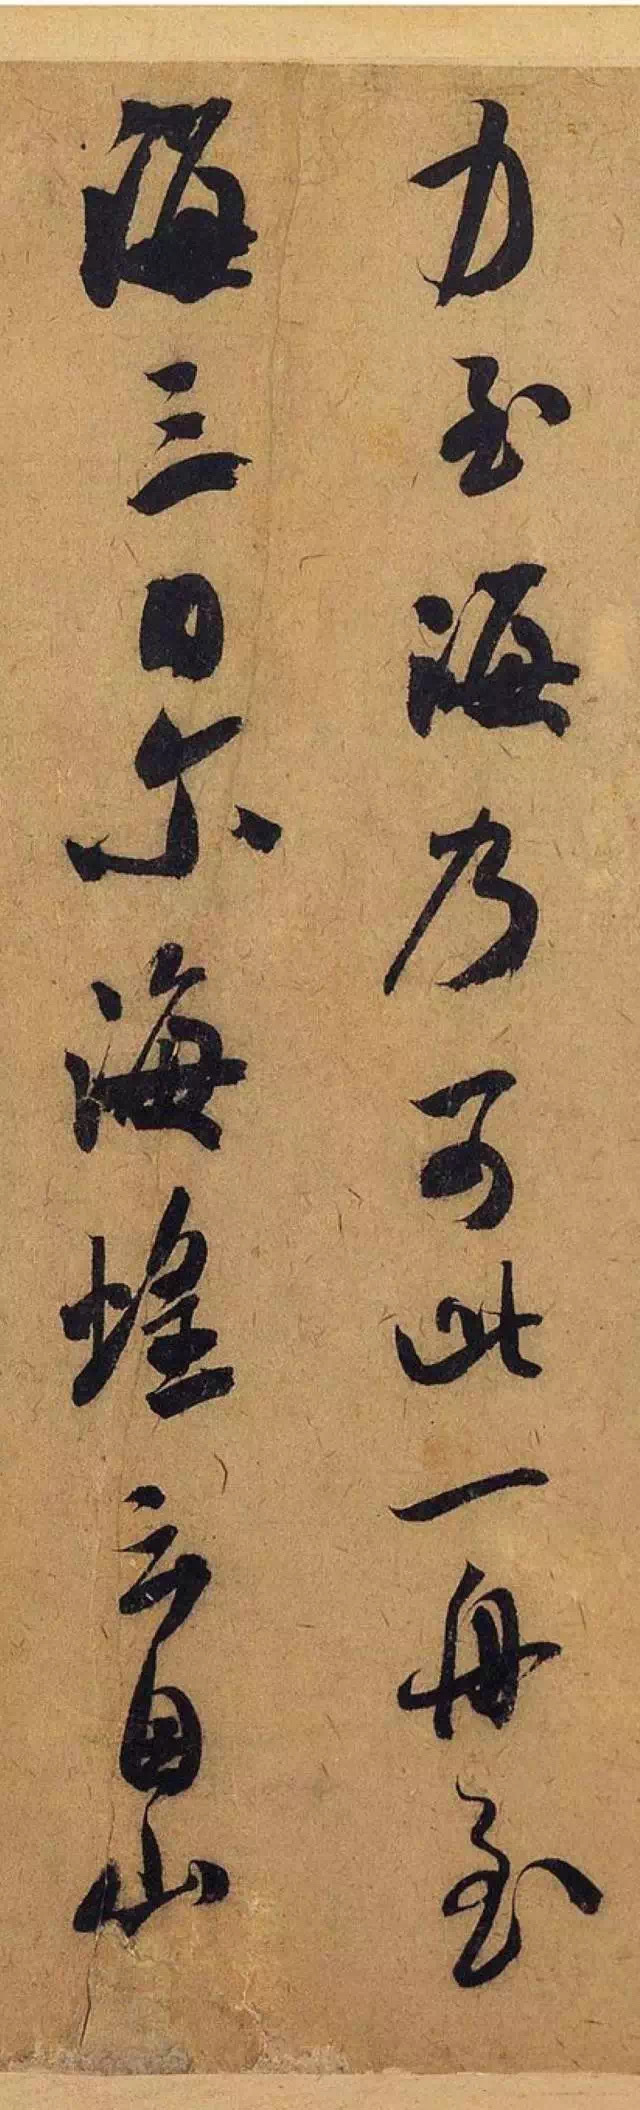 力至海乃可此一舟至
海三日尔海蝗云自山